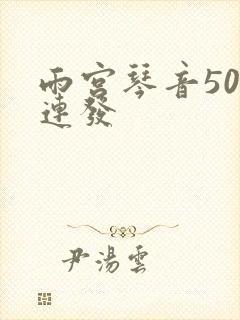 雨宮琴音50
連發
尹湯雲